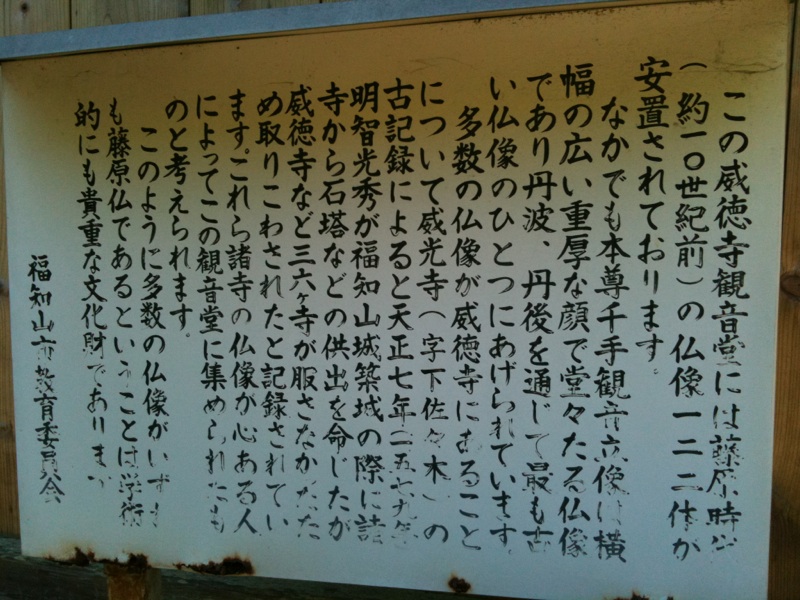 この威徳寺観音堂には藤原時代
(約一〇世紀前)の仏像一二二体が
安置されております。
なかでも本尊千手観音立像は横
幅の広い重厚な顔で堂々たる仏像
であり丹波、丹後を通じて最も古
い仏像のひとつにあげられています。
多数の仏像が威徳寺にあること
について威光寺(字下佐々木)の
古記録によると天正七年(一五七九年)
明智光秀が福知山城築城の際に諸
寺から石塔などの供出を命じたが
威徳寺など三六ヶ寺が服さなかったた
め取りこわされたと記録されてい
ます。これら諸寺の仏像が心ある人
によってこの観音堂に集められたも
のと考えられます。
このように多数の仏像がいずれ
も藤原仏であるということは学術
的にも貴重な文化財であります
福知山市教育委員会